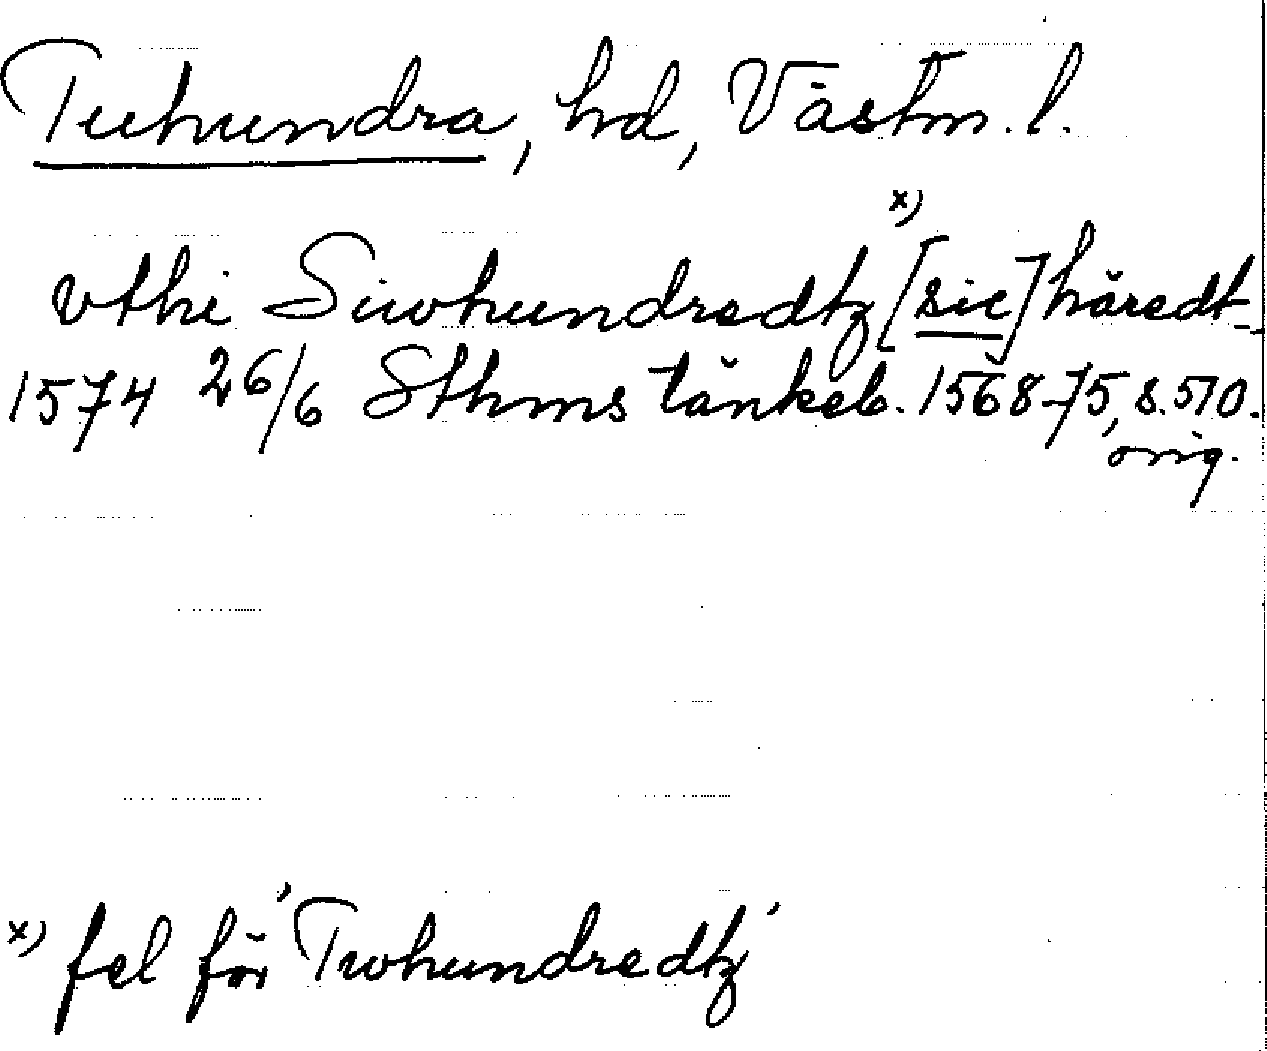 Tuhundra, hd, Västm. l.
vthi Siwhundredtz x) [sic] häredt
1574 26/6 Sthms tänkeb. 1568-75, s. 570.
orig.
x) fel för 'Twhundredtz'